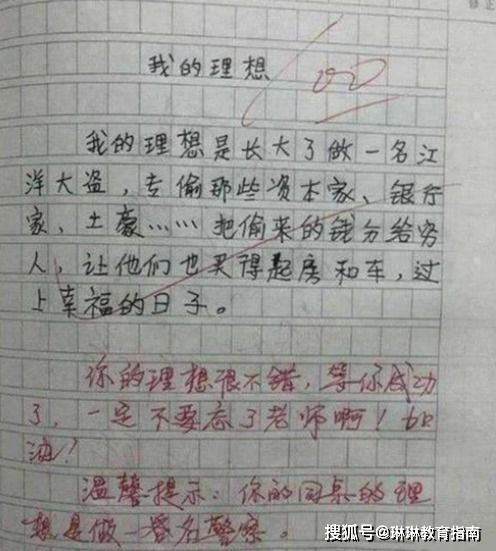 我的理想
我的理想是长大了做一名江
洋大盗,专偷那些资本家、银行
家、土豪……把偷来的钱分给穷
人,让他们也买得起房和车,过
上幸福的日子。
你的理想很不错,等你成功
了,一定不要忘了老师啊!加
油!
温馨提示:你的同桌的理
想是做一名警察。
搜狐号@琳琳教育指南